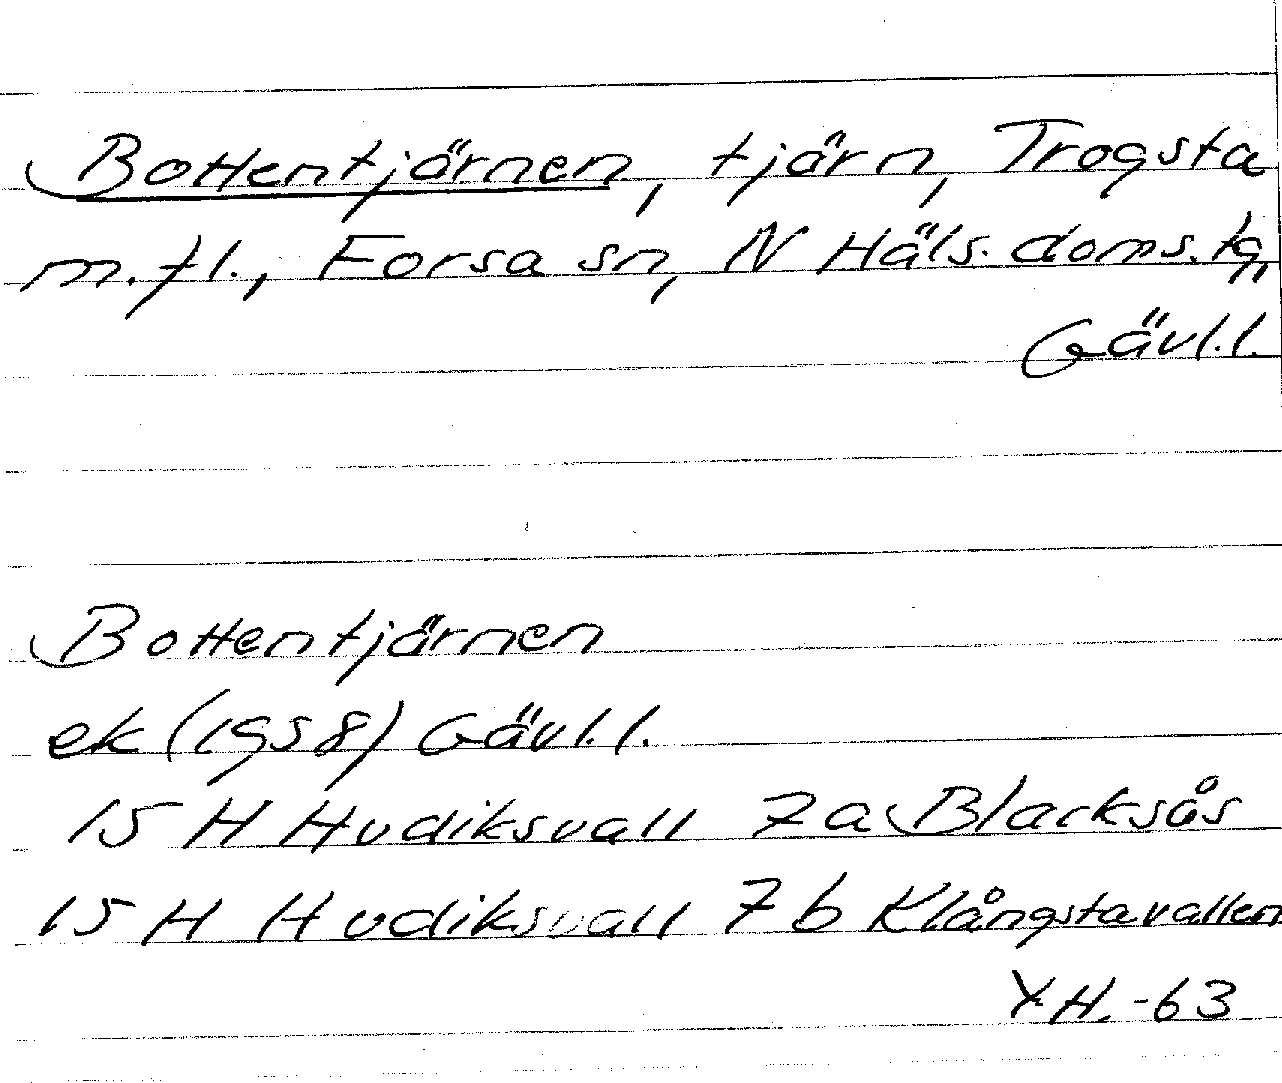 Bottentjärnen, tjärn, Trogsta
m.fl., Forsa sn, N Häls. doms.lg,
Gävl.l.
Bottentjärnen
ek (1958) Gävl.l.
15 H Hudiksvall 7a Blacksås
15 H Hudiksvall 7b Klångstavallen
Y.H. -63